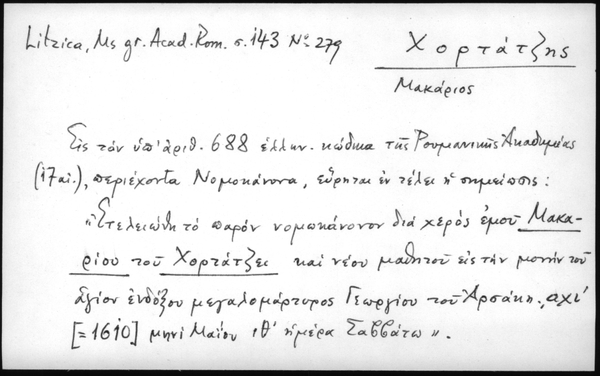 Litzica, Ms gr. Acad. Rom. σ. 143 No 279
Χορτάτζης
Μακάριος
Εἰς τὸν ὑπ' ἀριθ. 688 ἑλλην. κώδικα τῆς Ρουμανικῆς Ἀκαδημίας
(17 αἰ.), περιέχοντα Νομοκάνονα, εὕρηται ἐν τέλει ἡ σημείωσις:
"Ἐτελειώθη τὸ παρὸν νομωκάνονον διὰ χερὸς ἐμοῦ Μακα-
ρίου τοῦ Χορτάτζει καὶ νέου μαθητοῦ εἰς τὴν μονὴν τοῦ
ἁγίου ἐνδόξου μεγαλομάρτυρος Γεωργίου τοῦ Ἀρσάκη. ͵αχι'
[=1610] μηνὶ Μαΐου ιθ' ἡμέρα Σαββάτω".